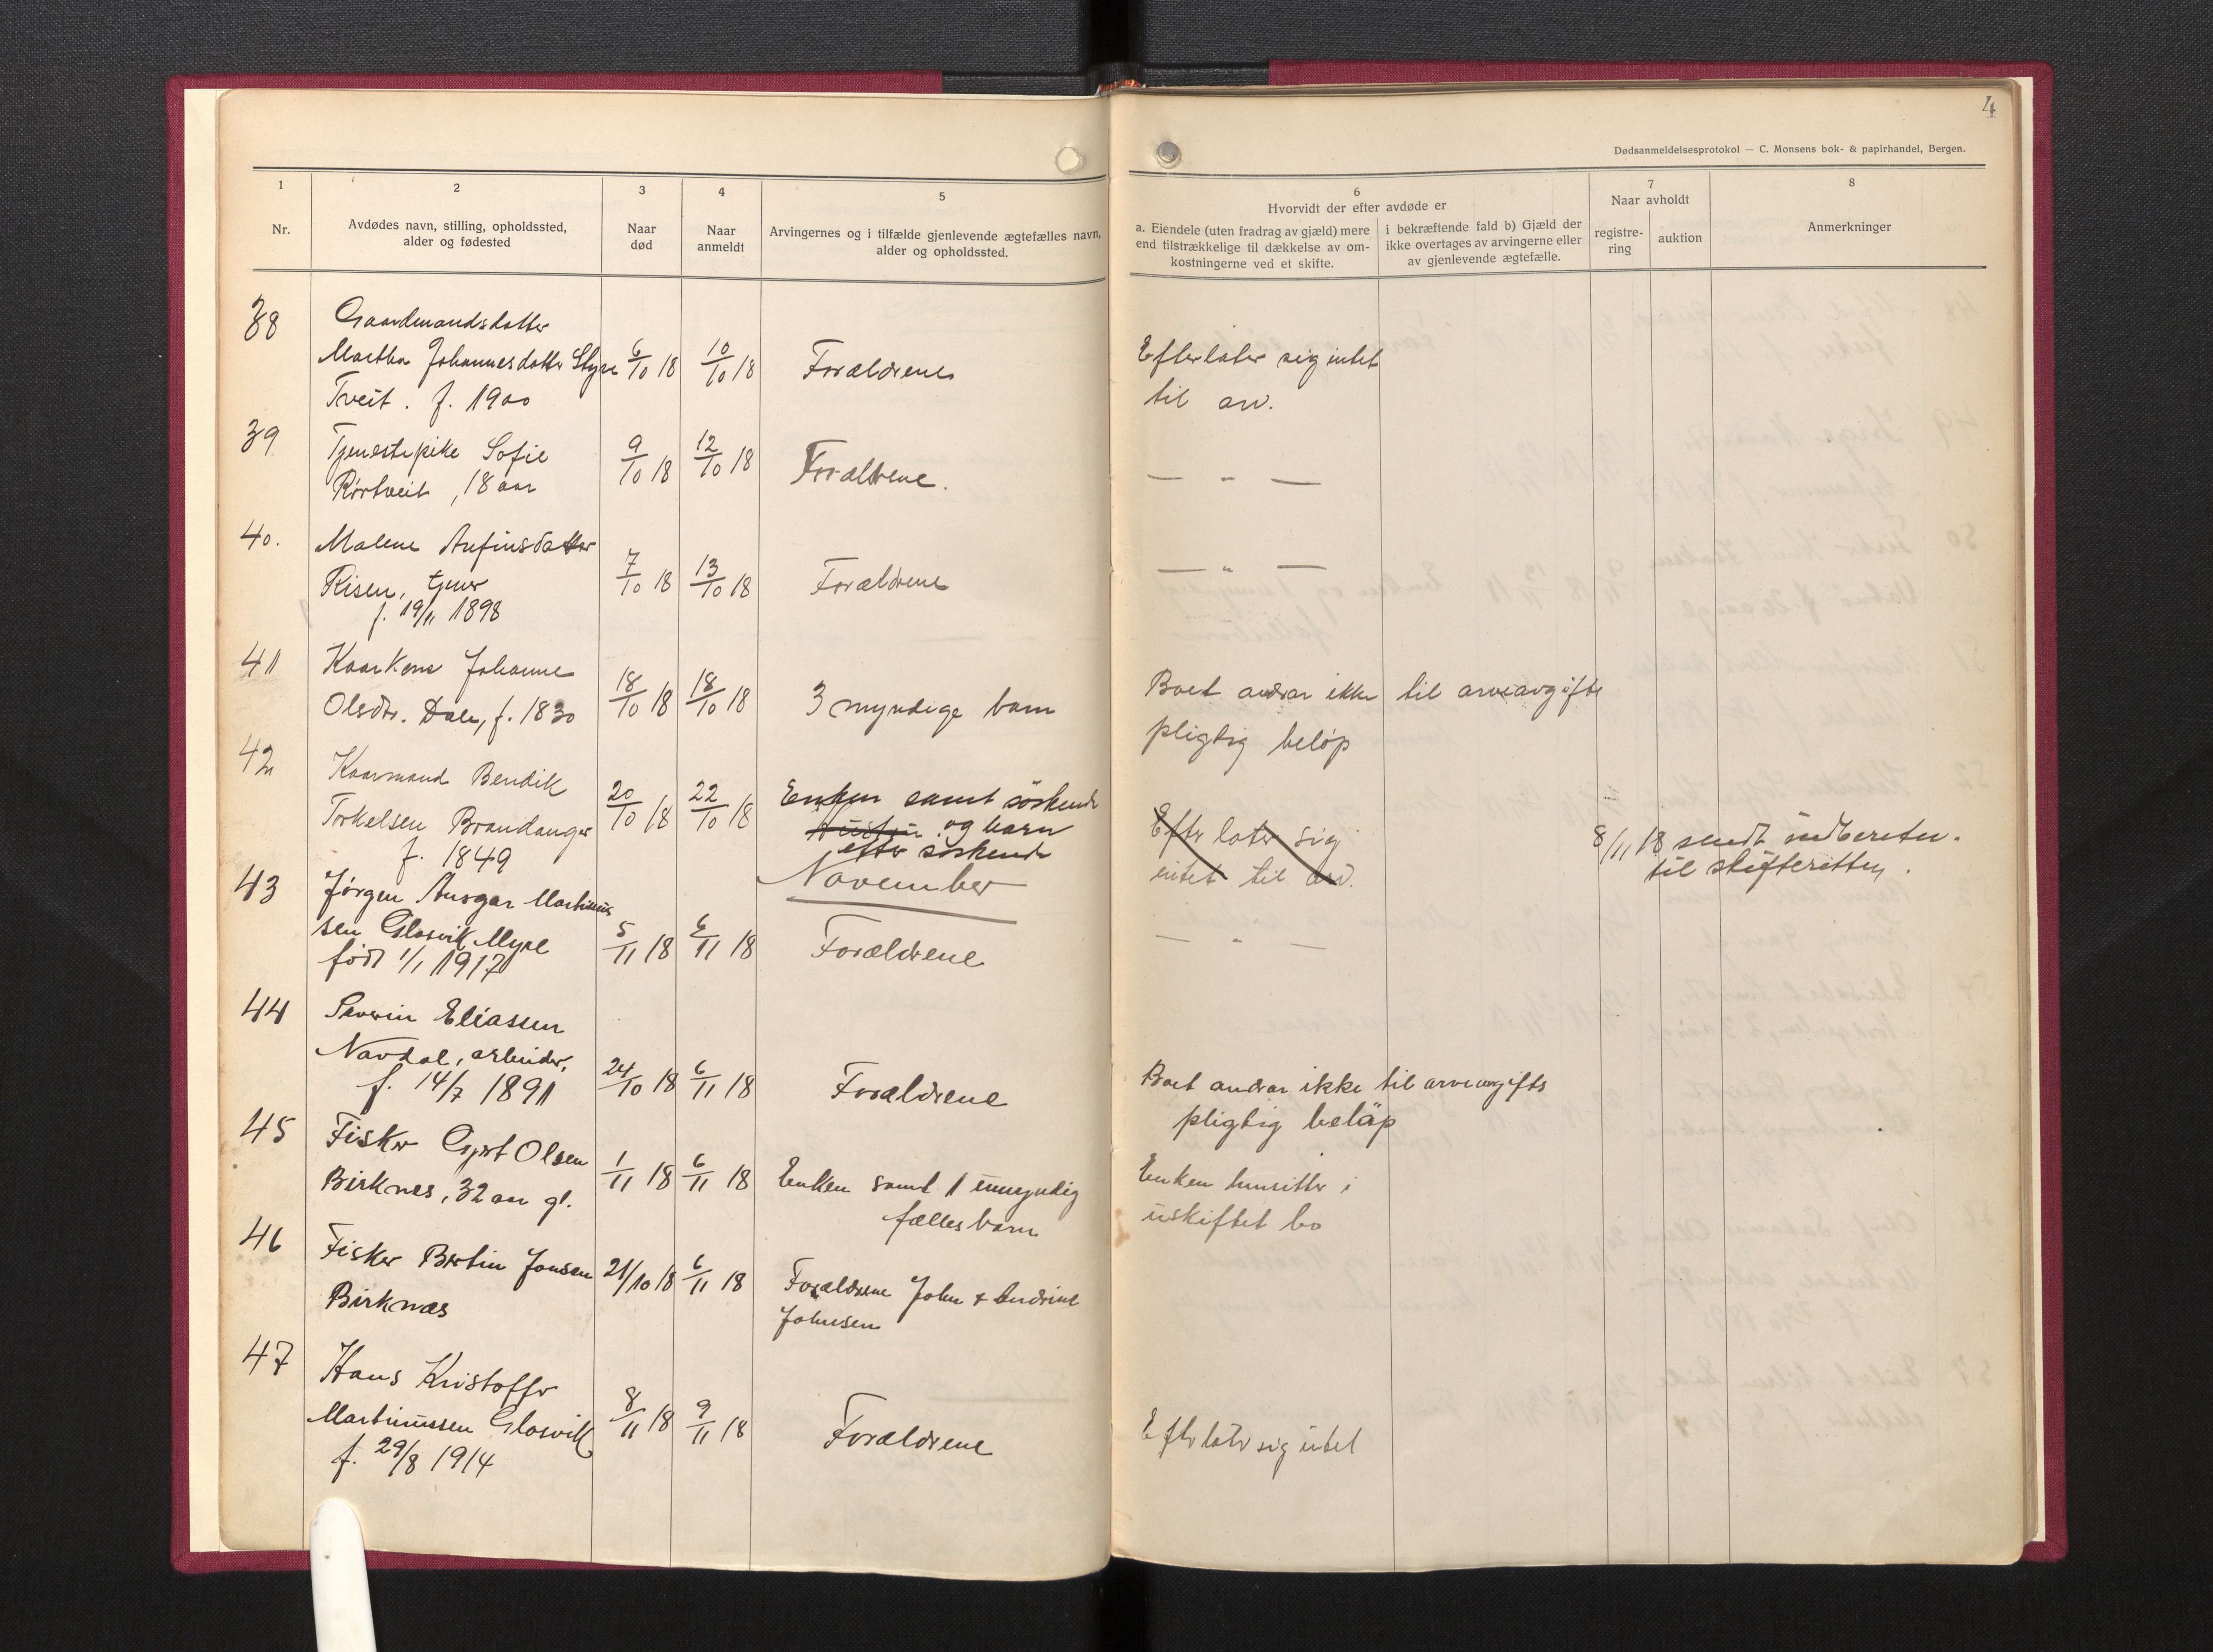 4
Dødsanmeldelsesprotokol — C. Monsens bok- & papirhandel, Bergen.
1
Nr.
2
Avdødes navn, stilling, opholdssted,
alder og fødested
3
Naar
død
4
Naar
anmeldt
5
Arvingernes og i tilfælde gjenlevende ægtefælles navn,
alder og opholdssted.
6
Hvorvidt der efter avdøde er
a. Eiendele (uten fradrag av gjæld) mere
end tilstrækkelige til dækkelse av om-
kostningerne ved et skifte.
i bekræftende fald b) Gjæld der
ikke overtages av arvingerne eller
av gjenlevende ægtefælle.
7
Naar avholdt
registre-
ring
auktion
8
Anmerkninger
38
Gaardmandsdatter
Martha Johannesdatter
Tveit. f. 1900
6/10 18
10/10 18
Forældrene
Efterlater sig intet
til arv.
39
Tjenestepike Sofie
Rörtveit, 18 aar
9/10 18
12/10 18
Forældrene.
— " —
40.
Malene Anfinsdatter
Risen, tjener
f. 19/11 1898
7/10 18
13/10 18
Forældrene
— " —
41
Kaarkone Johanne
Olsdtr. Dale, f. 1830
18/10 18
18/10 18
3 myndige barn
Boet andrar ikke til arveavgifts
pligtig beløp
42
Kaarmand Bendik
Torkelsen Brandanger
f. 1849
20/10 18
22/10 18
Enken samt söskende
og barn
efter söskende
Efterlater sig
intet til arv.
8/11 18 sendt indberetn.
til skifteretten.
November
43
Jørgen Ansgar Martinus
sen Glosvik Myre
född 1/1 1917
5/11 18
6/11 18
Forældrene
— " —
44
Severin Eliassen
Navdal, arbeider,
f. 14/7 1891
24/10 18
6/11 18
Forældrene
Boet andrar ikke til arveavgifts
pligtig beløp
45
Fisker Olsen
Birknes, 32 aar gl.
1/11 18
6/11 18
Enken samt 1 umyndig
fællesbarn
Enken hensitter i
uskiftet bo
46
Fisker Bertin Jonsen
Birknæs
21/10 18
6/11 18
Forældrene John & Andrine
Johnsen
47
Hans Kristoffer
Martinussen Glosvik
f. 29/8 1914
8/11 18
9/11 18
Forældrene
Efterlater sig intet